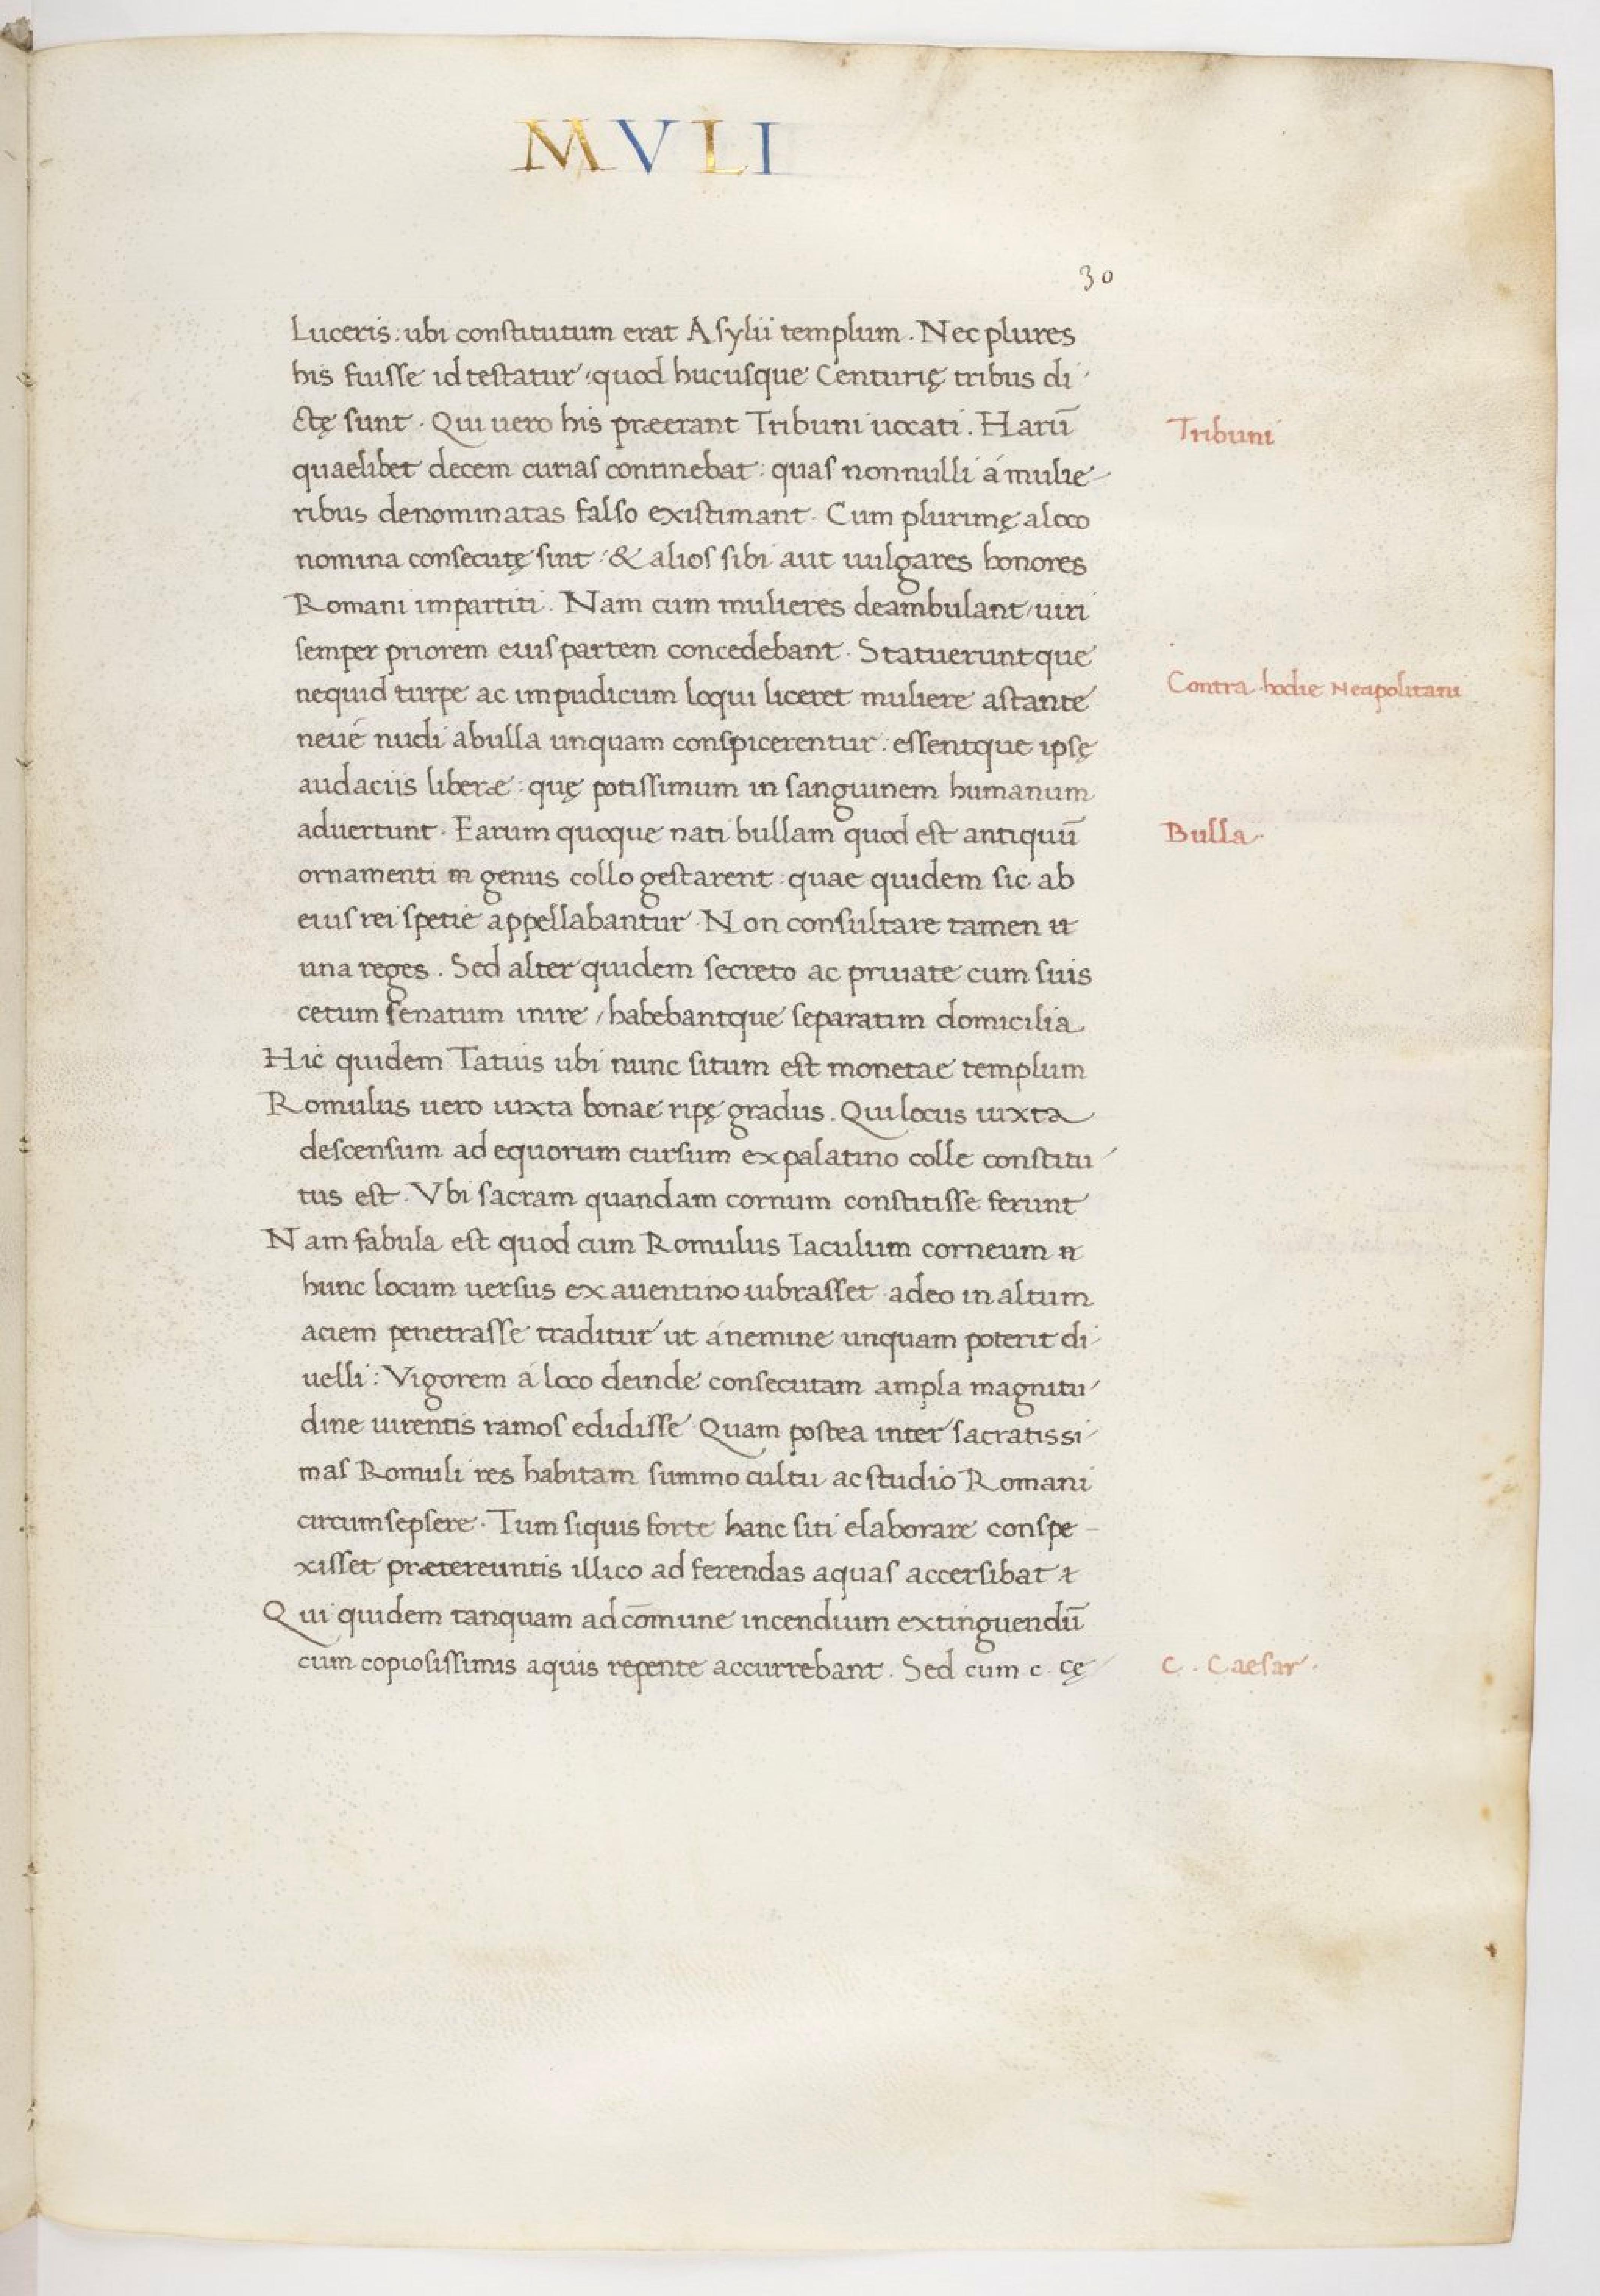 MVLI
30
Luceris: ubi constitutum erat Asylii templum. Nec plures
his fuisse id testatur: quod hucusque Centurię tribus di
ctę sunt. Qui uero his præerant Tribuni uocati. Harū
Tribuni
quaelibet decem curias continebat: quas nonnulli á mulie-
ribus denominatas falso existimant. Cum plurimę a loco
nomina consecutę sint: & alios sibi aut uulgares honores
Romani impartiti. Nam cum mulieres deambulant/uiri
semper priorem eius partem concedebant. Statueruntque
nequid turpe ac impudicum loqui liceret muliere astante
Contra hodie Neapolitani
neué nudi abulla unquam conspicerentur: essentque ipsę
audaciis liberæ: quę potissimum in sanguinem humanum
aduertunt. Earum quoque nati bullam quod est antiquū
Bulla.
ornamenti genus collo gestarent: quae quidem sic ab
eius rei spetie appellabantur. Non consultare tamen
una reges. Sed alter quidem secreto ac priuate cum suis
cetum senatum inire/habebantque separatim domicilia
Hic quidem Tatius ubi nunc situm est monetae templum
Romulus uero iuxta bonae ripę gradus. Qui locus iuxta
descensum ad equorum cursum ex palatino colle constitu
tus est. Vbi sacram quandam cornum constitisse ferunt
Nam fabula est quod cum Romulus Iaculum corneum
hunc locum uersus ex auentino uibrasset adeo in altum
aciem penetrasse traditur ut á nemine unquam poterit di
uelli: Vigorem á loco deinde consecutam ampla magnitu
dine uirentis ramos edidisse Quam postea inter sacratissi
mas Romuli res habitam summo cultu ac studio Romani
circumsepsere. Tum siquis forte hanc siti elaborare conspe-
xisset prætereuntis illico ad ferendas aquas accersibat
Qui quidem tanquam ad cōmune incendium extinguendū
cum copiosissimis aquis repente accurrebant. Sed cum c. cę
C. Caesar.